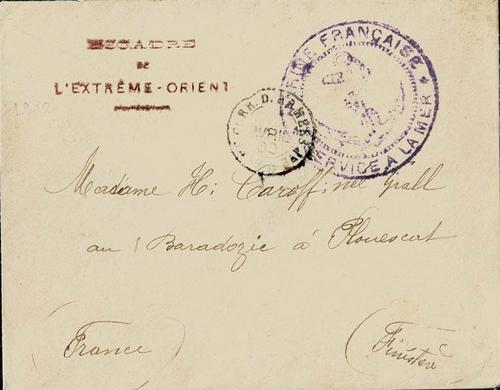 ESCADRE
DE
L'EXTRÊME-ORIENT
MARINE FRANÇAISE
SERVICE À LA MER
CORR. D. ARMÉES
Madame H. Caroff née Grall
au Baradozic à Plouescat
(France) (Finistère)